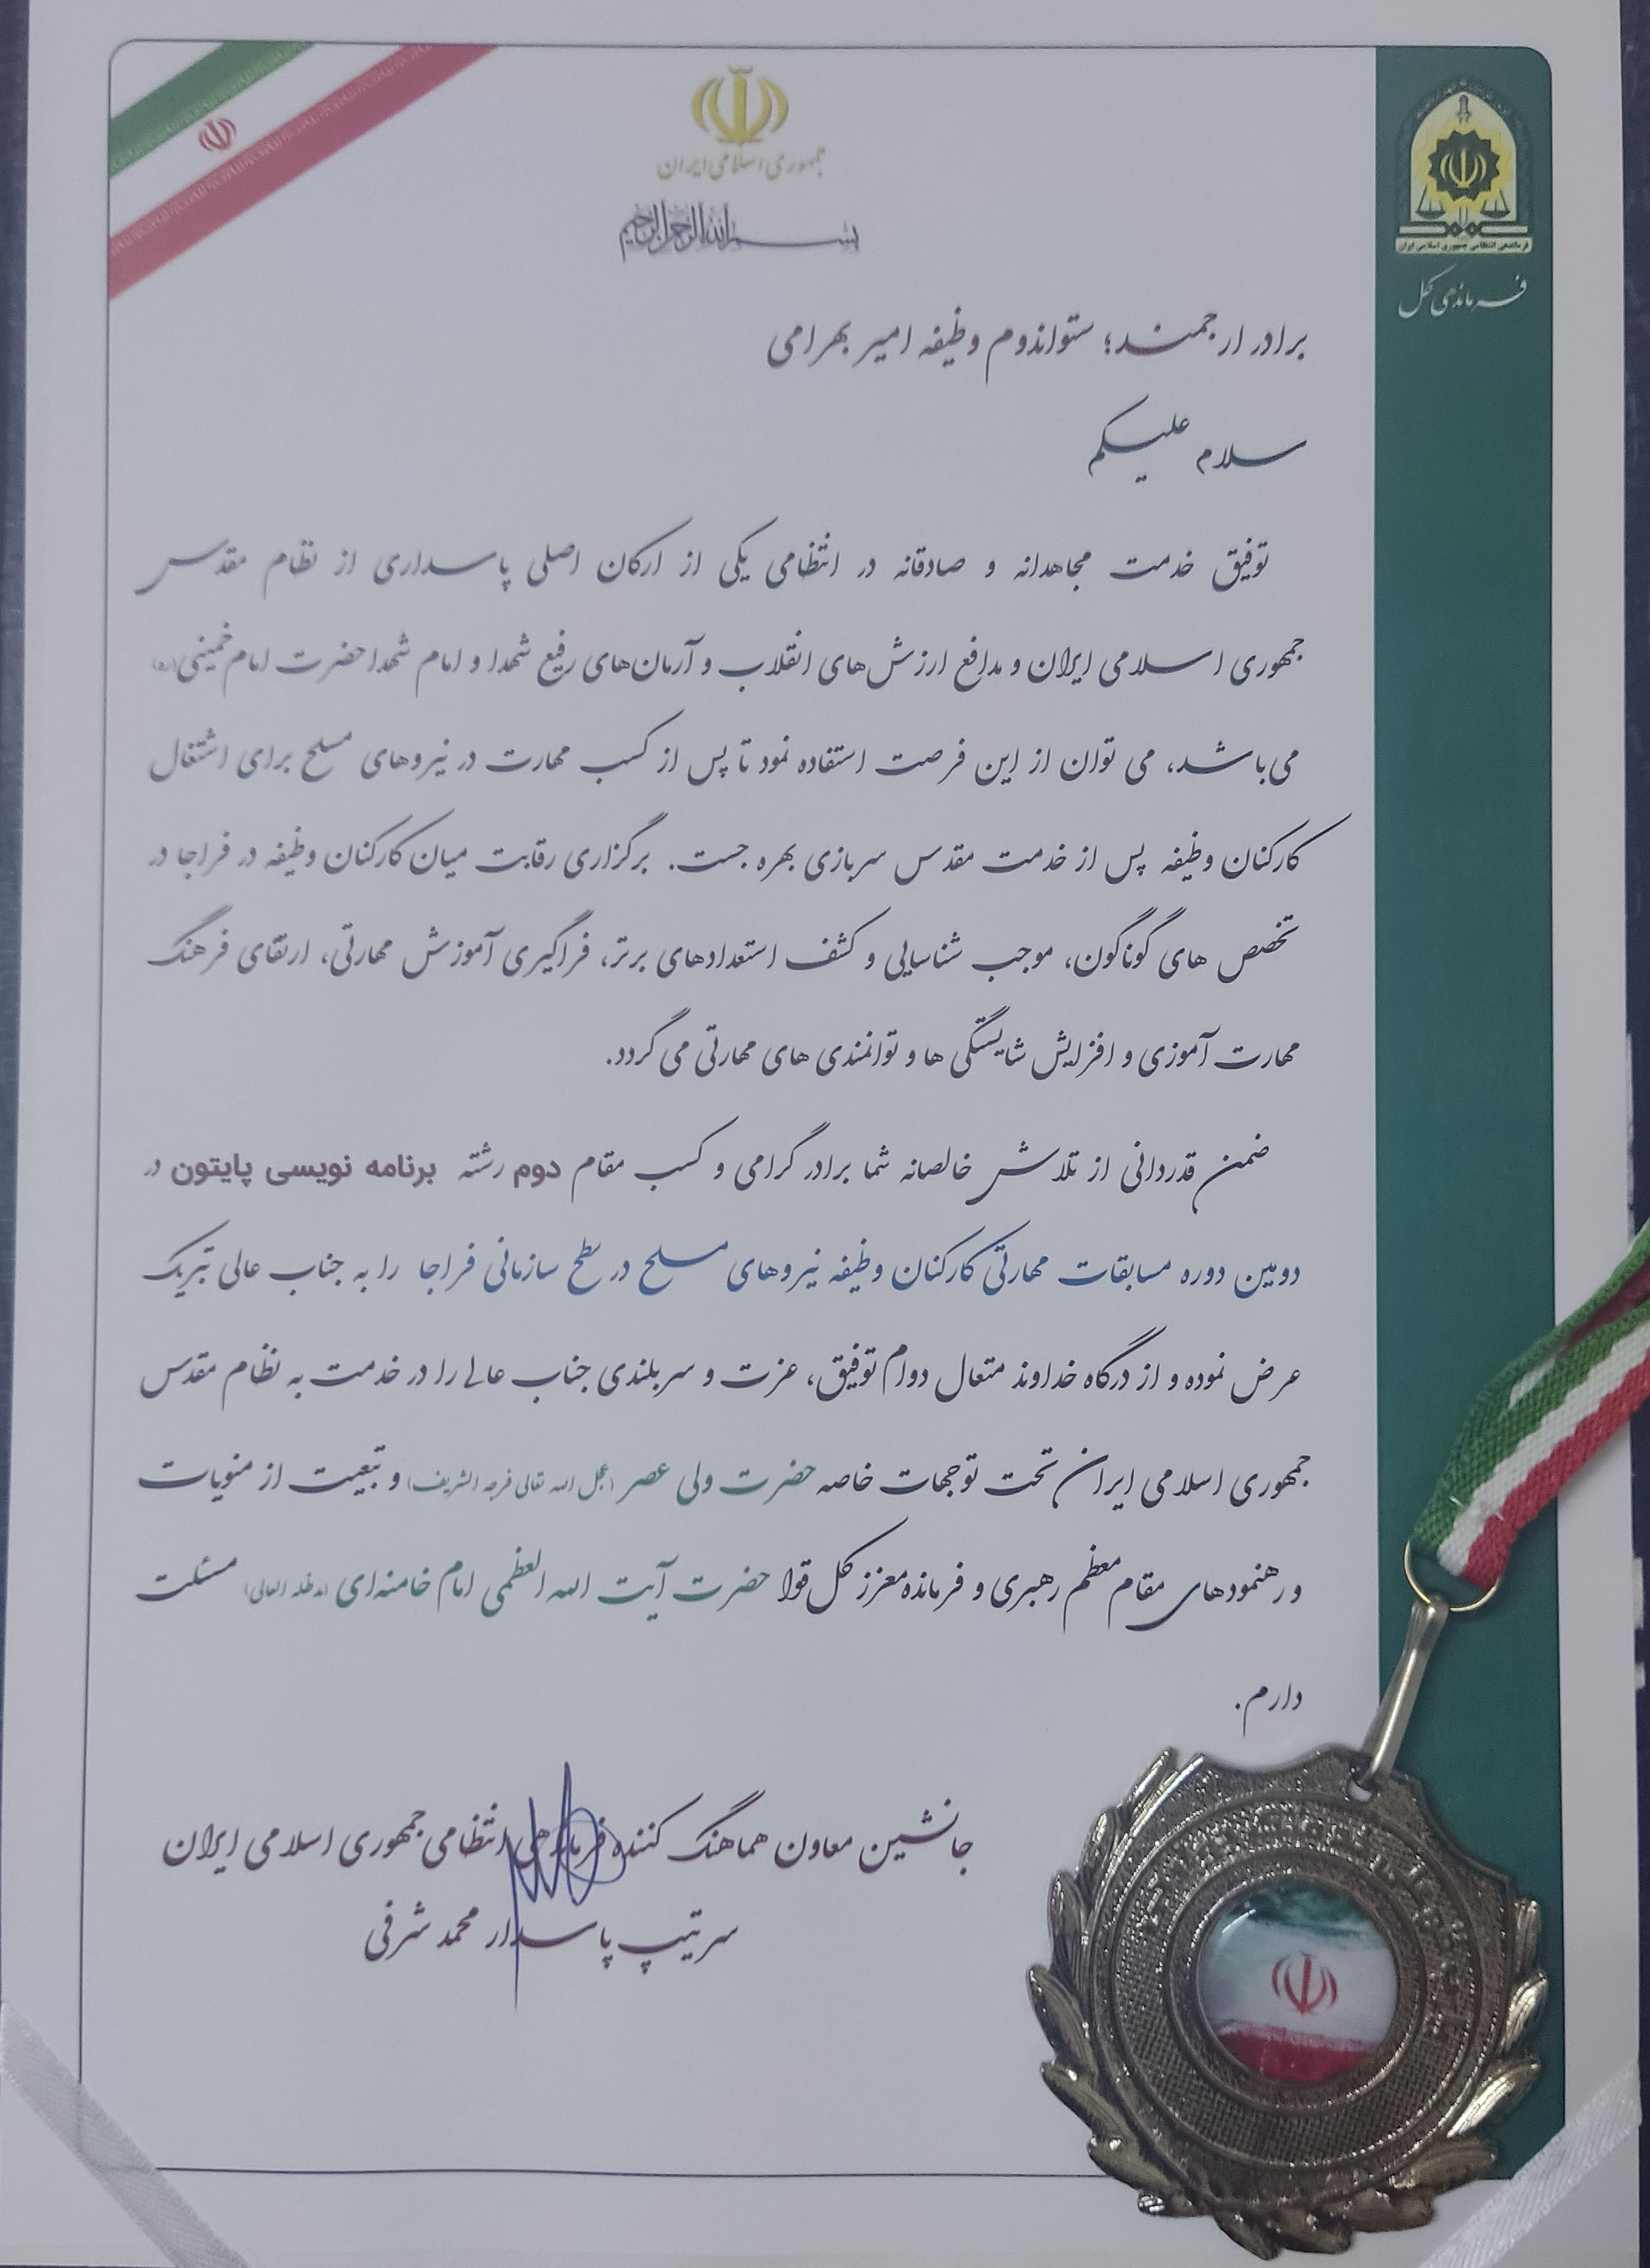 جمهوری اسلامی ایران
بسم الله الرحمن الرحیم
فرماندهی انتظامی جمهوری اسلامی ایران
فرماندهی کل
برادر ارجمند؛ ستواندوم وظیفه امیر بهرامی
سلام علیکم
توفیق خدمت مجاهدانه و صادقانه در انتظامی یکی از ارکان اصلی پاسداری از نظام مقدس
جمهوری اسلامی ایران و مدافع ارزش‌های انقلاب و آرمان‌های رفیع شهدا و امام شهدا حضرت امام خمینی(ره)
می‌باشد، می توان از این فرصت استفاده نمود تا پس از کسب مهارت در نیروهای مسلح برای اشتغال
کارکنان وظیفه پس از خدمت مقدس سربازی بهره جست. برگزاری رقابت میان کارکنان وظیفه در فراجا در
تخصص های گوناگون، موجب شناسایی و کشف استعدادهای برتر، فراگیری آموزش مهارتی، ارتقای فرهنگ
مهارت آموزی و افزایش شایستگی ها و توانمندی های مهارتی می گردد.
ضمن قدردانی از تلاش خالصانه شما برادر گرامی و کسب مقام دوم رشته برنامه نویسی پایتون در
دومین دوره مسابقات مهارتی کارکنان وظیفه نیروهای مسلح در سطح سازمانی فراجا را به جناب عالی تبریک
عرض نموده و از درگاه خداوند متعال دوام توفیق، عزت و سربلندی جناب عالی را در خدمت به نظام مقدس
جمهوری اسلامی ایران تحت توجهات خاصه حضرت ولی عصر (عجل الله تعالی فرجه الشریف) و تبعیت از منویات
و رهنمودهای مقام معظم رهبری و فرمانده معزز کل قوا حضرت آیت الله العظمی امام خامنه‌ای (مدظله العالی) مسئلت
دارم.
جانشین معاون هماهنگ کننده فرماندهی انتظامی جمهوری اسلامی ایران
سرتیپ پاسدار محمد شرفی